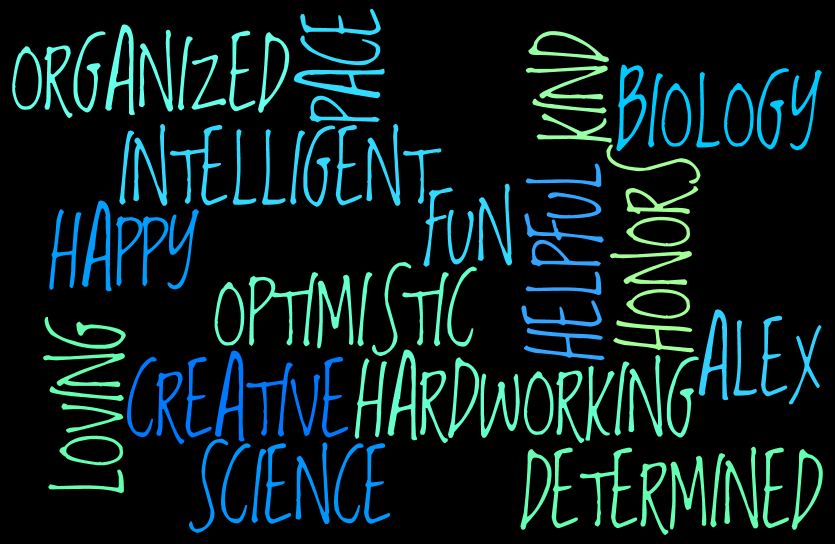 ORGANIZED
PACE
KIND
BIOLOGY
INTELLIGENT
HAPPY
FUN
HELPFUL
HONORS
OPTIMISTIC
LOVING
CREATIVE
HARDWORKING
ALEX
SCIENCE
DETERMINED